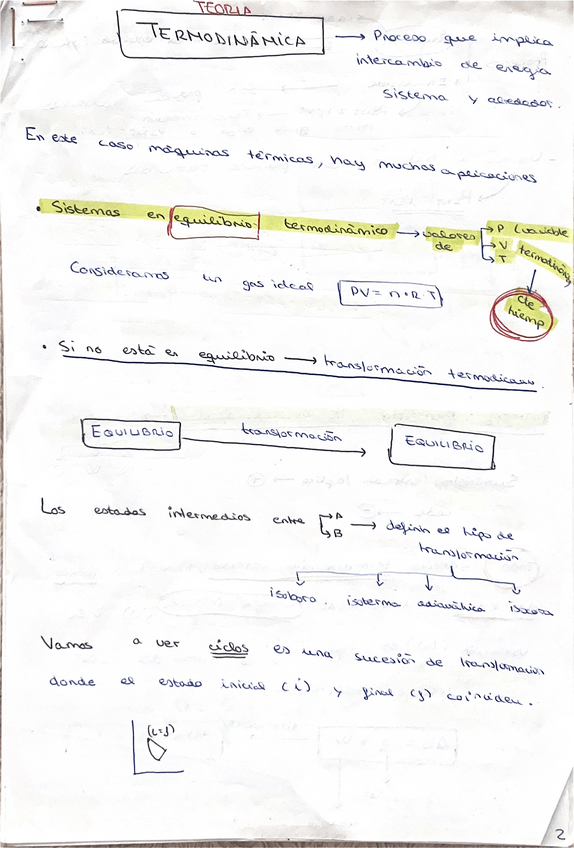 TEORIA
TERMODINÁMICA → Proceso que implica
intercambio de energia
sistema y alrededor.
En este caso máquinas térmicas, hay muchas aplicaciones
• Sistemas en equilibrio termodinámico → valores de P (variable
V termodinámica
T
de tiemp
Consideramos un gas ideal PV = n·R·T
• Si no está en equilibrio → transformación termodinam.
EQUILIBRIO transformación EQUILIBRIO
Los estados intermedios entre A → definen el tipo de
B transformación
isobara. isoterma adiabática isocora
Vamos a ver ciclos es una sucesión de transformación
donde el estado inicial (i) y final (f) coinciden.
(i=f)
2